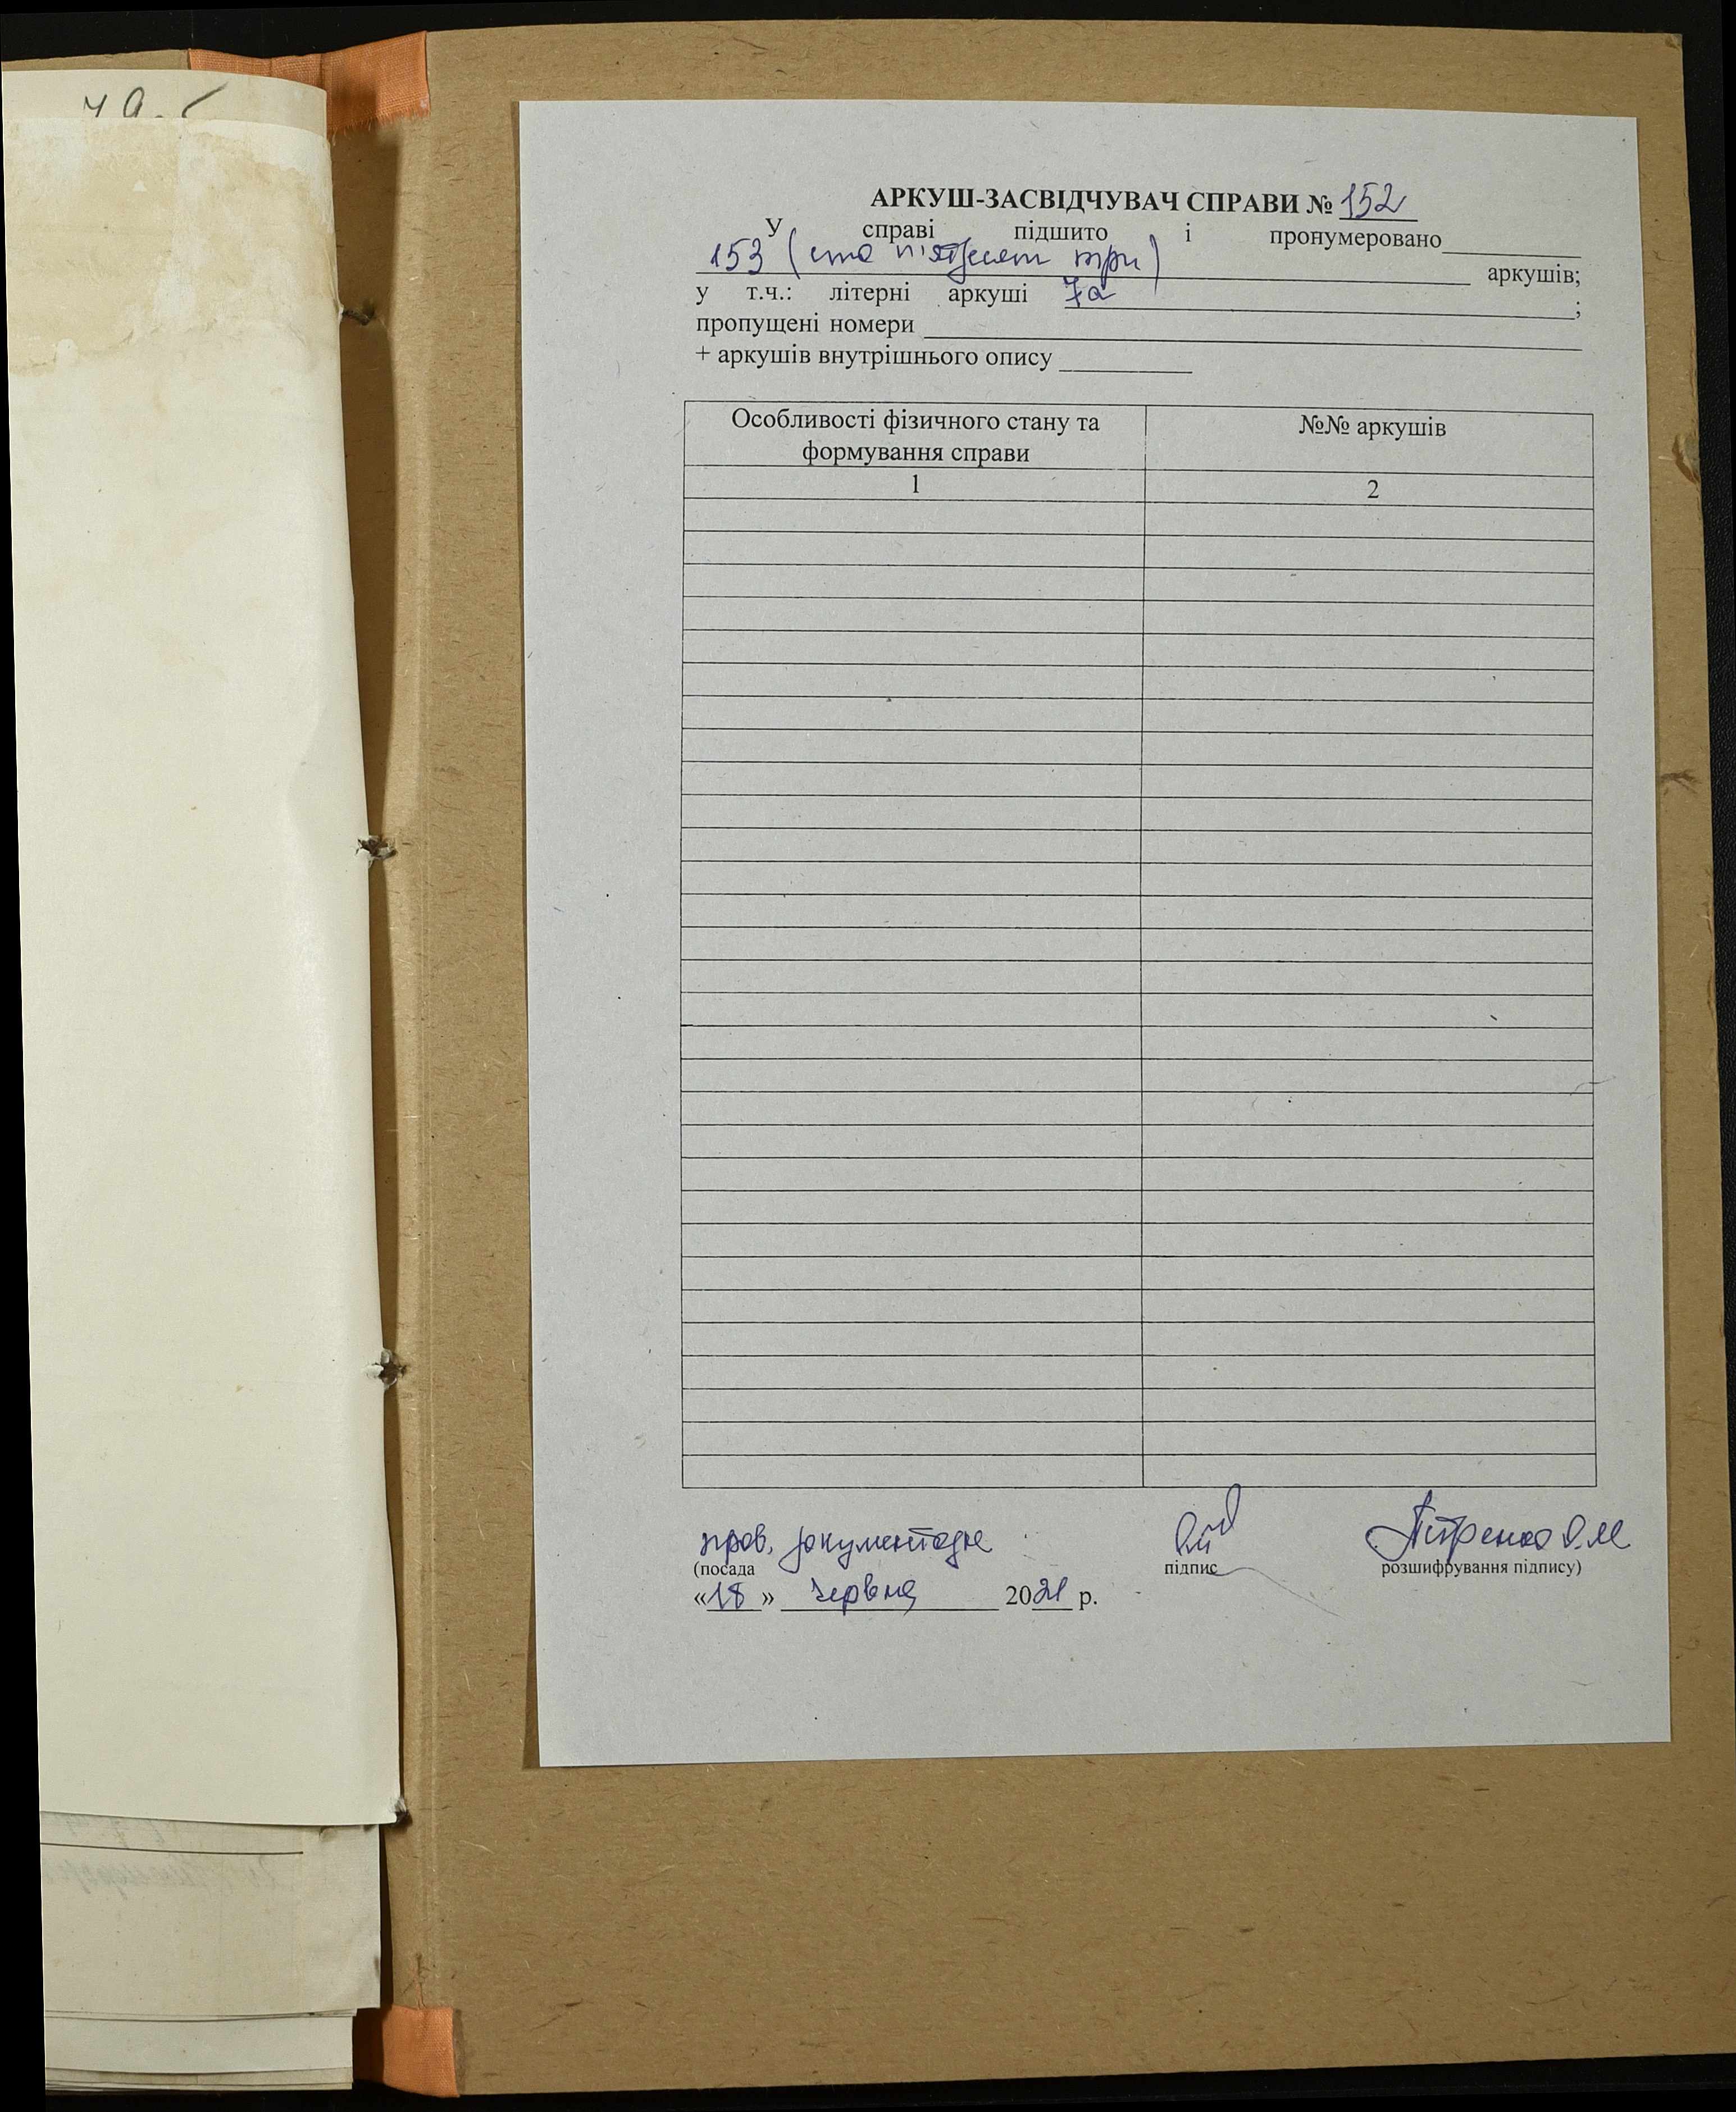 АРКУШ-ЗАСВІДЧУВАЧ СПРАВИ № 152
У справі підшито і пронумеровано
153 (сто п'ятдесят три) аркушів;
у т.ч.: літерні аркуші 7а ;
пропущені номери
+ аркушів внутрішнього опису
Особливості фізичного стану та формування справи
№№ аркушів
1 2
пров. документозн Петренко О.М
(посада підпис розшифрування підпису)
«18» червня 2021 р.